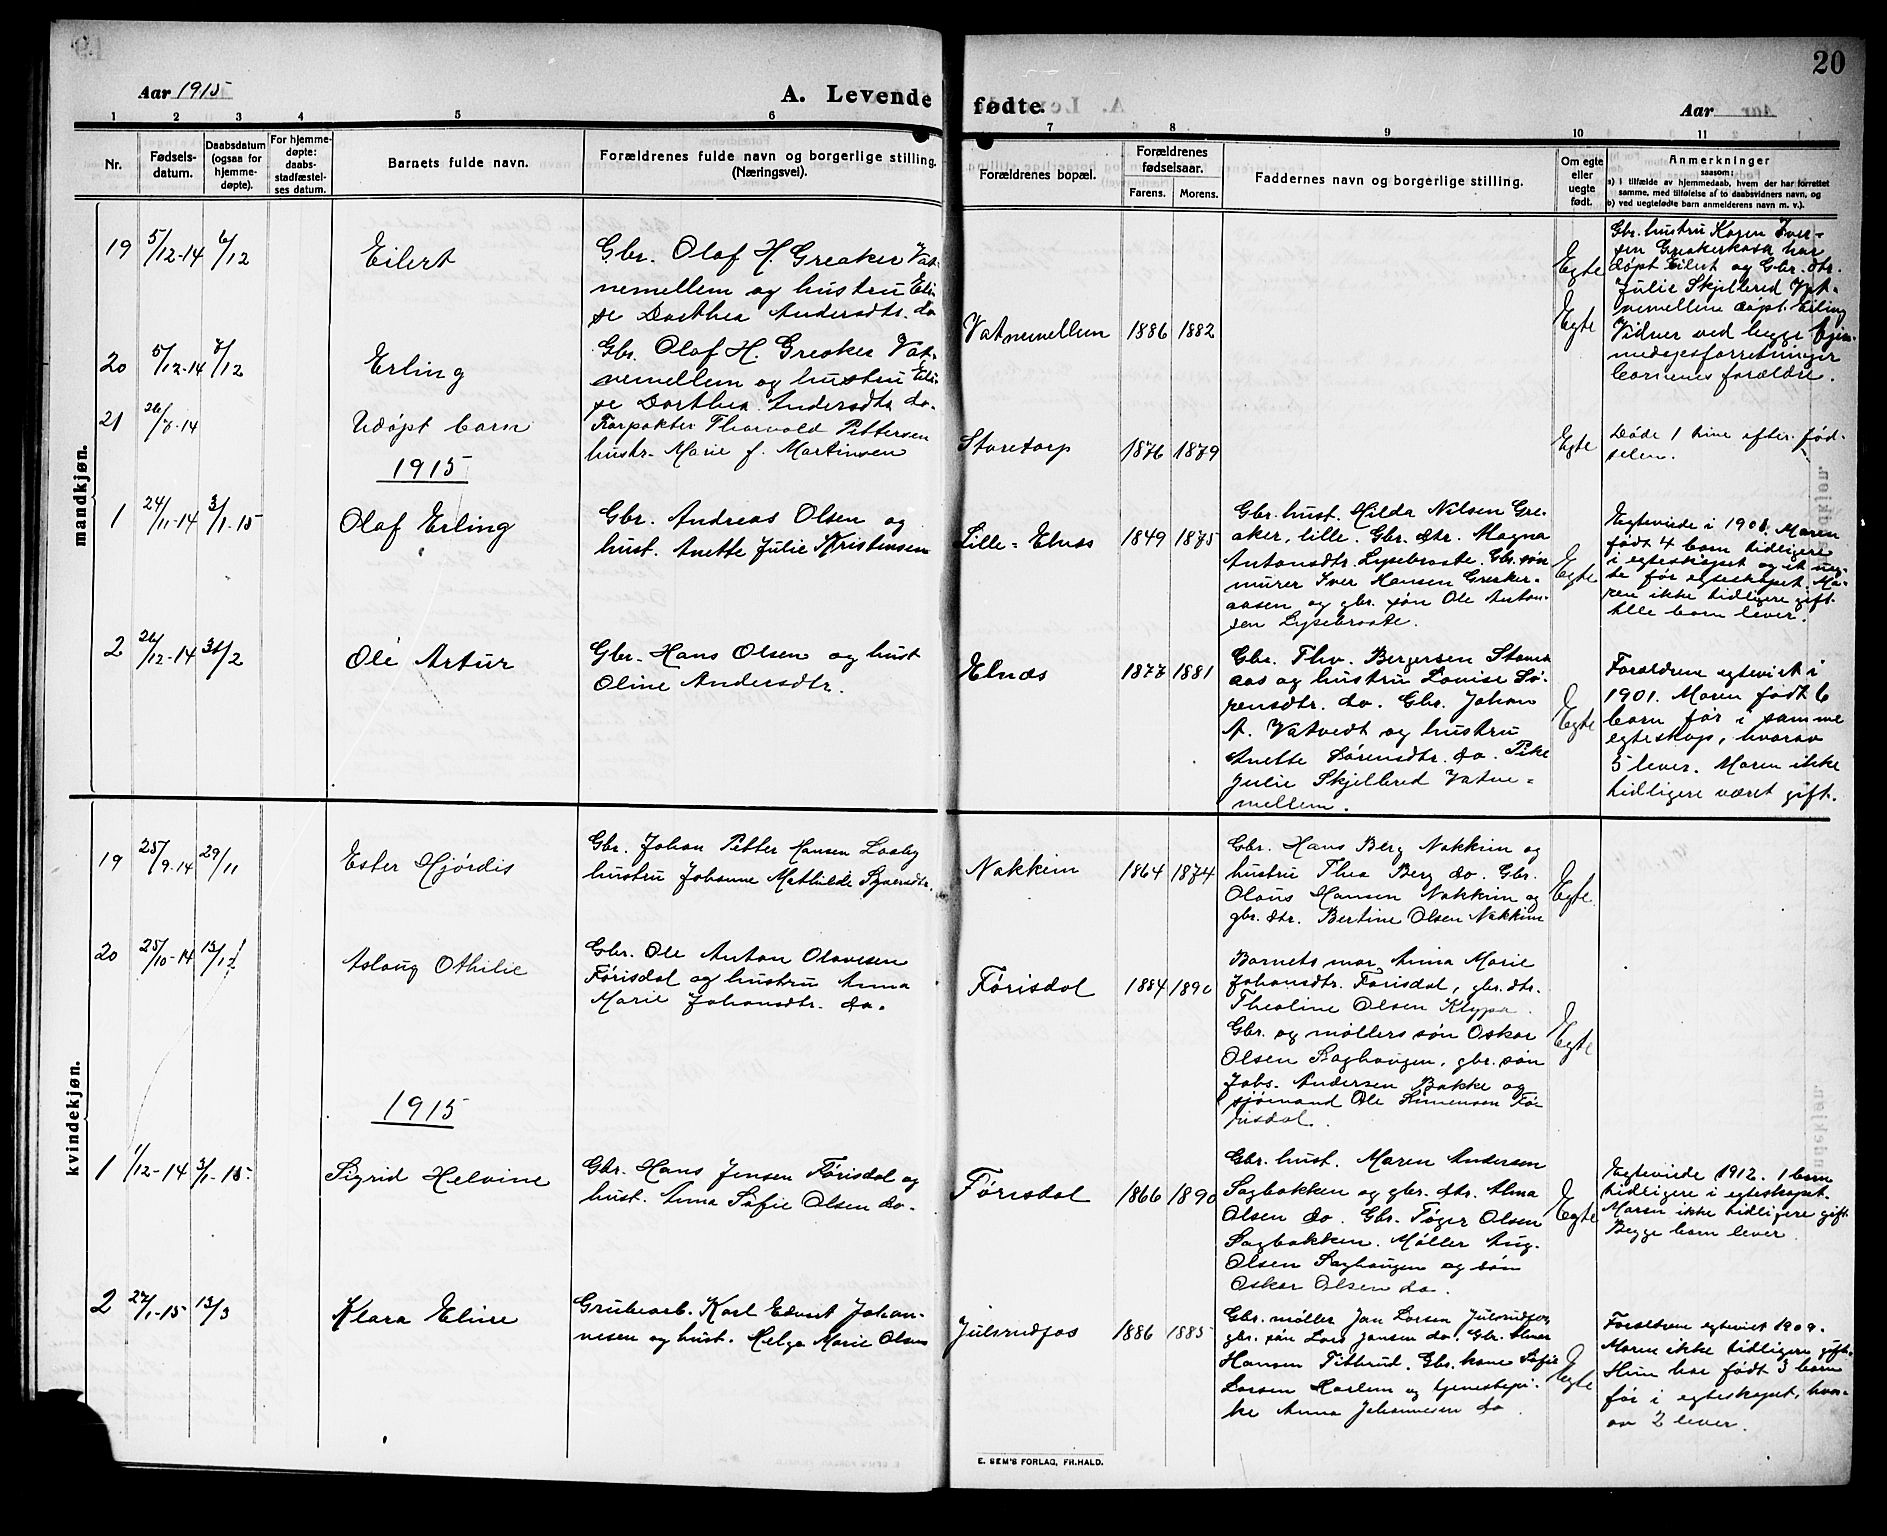 20
Aar 1915
A. Levende fødte.
Aar
1 2 3 4 5 6 7 8 9 10 11
Nr.
Fødsels-
datum.
Daabsdatum
(ogsaa for
hjemme-
døpte).
For hjemme-
døpte:
daabs-
stadfæstel-
ses datum.
Barnets fulde navn.
Forældrenes fulde navn og borgerlige stilling.
(Næringsvei).
Forældrenes bopæl.
Forældrenes
fødselsaar.
Farens. Morens.
Faddernes navn og borgerlige stilling.
Om egte
eller
uegte
født.
Anmerkninger
saasom:
a) i tilfælde av hjemmedaab, hvem der har forrettet
samme, med tilføielse af to daabsvidners navn, og
b) ved uegtefødte barn anmelderens navn m. v.).
mandkjøn.
19 5/12-14 6/12
Eilert
Gbr. Olaf H. Greaker Vat-
nemellem og hustru Eli-
se Dorthea Andersdtr. do
Egte
Gbr. hustru Karen Iver-
sen Greakerkasa har
døpt Eilert og Gbr. dtr.
Julie Skjellerød Vat-
nemellem døpt Erling
Vidner ved begge hjem-
medøpsforretninger
barnenes forældre.
20 5/12-14 7/12
Erling
Gbr. Olaf H. Greaker Vat-
nemellem og hustru Eli-
se Dorthea Andersdtr do.
Vatnemellem 1886 1882
Egte
21 26/7-14
Udøpt barn
Forpakter Thorvald Pettersen
hustr. Marie f. Martinsen
Storetorp 1876 1879
Egte
Døde 1 time efter fød-
selen.
1915
1 24/11-14 3/1-15
Olaf Erling
Gbr. Andreas Olsen og
hust. Anette Julie Kristensen
Lille-Elnæs 1849 1875
Gbr. hust. Hilda Nilsen Gre-
aker, lille. Gbr. dtr. Magna
Antonsdtr. Lysebraate. Gbr. søn
murer Iver Hansen Greaker-
aasen og gbr. søn Ole Anton-
sen Lysebraate.
Egte
Egteviede i 1901. Moren
født 4 barn tidligere
i egteskapet og et ueg-
te før egteskapet. Mo-
ren ikke tidligere gift.
Alle barn lever.
2 26/12-14 /2
Ole Artur
Gbr. Hans Olsen og hust
Oline Andersdtr.
Elnæs 1877 1881
Gbr. Thv. Bergersen
aas og hustru Lovise Sø-
rensdtr. do. Gbr. Johan
A. Vatvedt og hustru
Anette Sørensdtr. do. Pike
Julie Skjellerød Vatne-
mellem.
Egte
Forældrene egteviet i
1901. Moren født 6
barn før i samme
egteskap, hvorav
5 lever. Moren ikke
tidligere været gift.
kvindekjøn.
19 25/9-14 29/11
Ester Hjørdis
Gbr. Johan Petter Hansen Laaby
hustru Johanne Mathilde
Nakkim 1864 1874
Gbr. Hans Berg Nakkim og
hustru Thea Berg do. Gbr.
Olaus Hansen Nakkim og
gbr. dtr. Bertine Olsen Nakkim
Egte
20 25/10-14 13/12
Aslaug Othilie
Gbr. Ole Anton Olavesen
Førisdal og hustru Anna
Marie Johansdtr. do.
Førisdal 1884 1890
Barnets mor Anna Marie
Johansdtr. Førisdal, gbr. dtr.
Theoline Olsen Klypa.
Gbr. og møllers søn Oskar
Olsen Saghaugen, gbr. søn
Johs. Andersen Bakke og
sjømand Ole Simensen Før
isdal.
Egte
1915
1 1/12-14 3/1-15
Sigrid Helvine
Gbr. Hans Jensen Førisdal og
hust. Anna Sofie Olsen do.
Førisdal 1866 1890
Gbr. hust. Maren Andersen
Sagbakken og gbr. dtr. Alma
Olsen do. Gbr. Tøger Olsen
Sagbakken. Møller Aug.
Olsen Saghaugen og søn
Oskar Olsen do.
Egte
Egteviede 1912. 1 barn
tidligere i egteskapet.
Moren ikke tidligere gift
Begge barn lever.
2 27/1-15 13/3
Klara Eline
Grubearb. Karl Edvart Johan-
nesen og hust. Helga Marie Olsen
Julsrudfos 1886 1885
Gbr. møller Jan Larsen Julsrudfos,
gbr. søn Lars Jansen do. Gbr.
Hansen Tittrud. Gbr. kone Sofie
Larsen Harlem og tjenestepi-
ke Anna Johannesen do.
Egte
Forældrene egteviet 1909.
Moren ikke tidligere gift.
Hun har født 3 barn
før i egteskapet, hvor-
av 2 lever.
E. SEM'S FORLAG, FR.HALD.